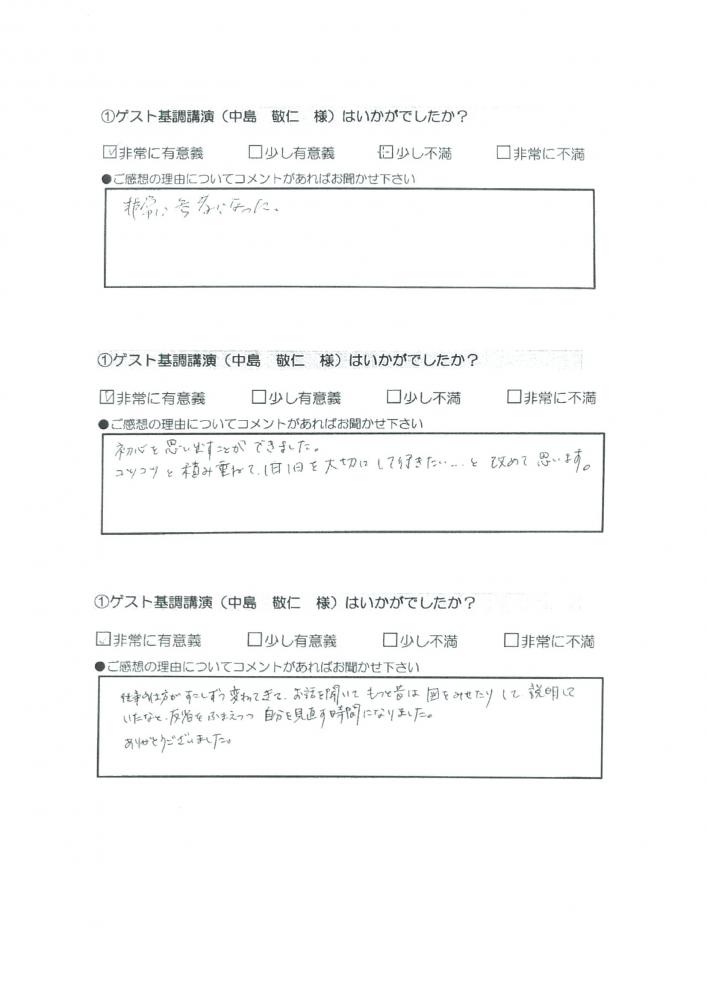 ①ゲスト基調講演（中島　敬仁　様）はいかがでしたか？
☑非常に有意義　□少し有意義　□少し不満　□非常に不満
●ご感想の理由についてコメントがあればお聞かせ下さい
非常に参考になった。
①ゲスト基調講演（中島　敬仁　様）はいかがでしたか？
☑非常に有意義　□少し有意義　□少し不満　□非常に不満
●ご感想の理由についてコメントがあればお聞かせ下さい
初心を思い出すことができました。
コツコツと積み重ねて、1日1日を大切にして行きたい…と改めて思います。
①ゲスト基調講演（中島　敬仁　様）はいかがでしたか？
☑非常に有意義　□少し有意義　□少し不満　□非常に不満
●ご感想の理由についてコメントがあればお聞かせ下さい
仕事の仕方がすこしずつ変わってきて、お話を聞いてもっと昔は図をみせたりして説明して
いたなと、反省をふまえつつ自分を見直す時間になりました。
ありがとうございました。